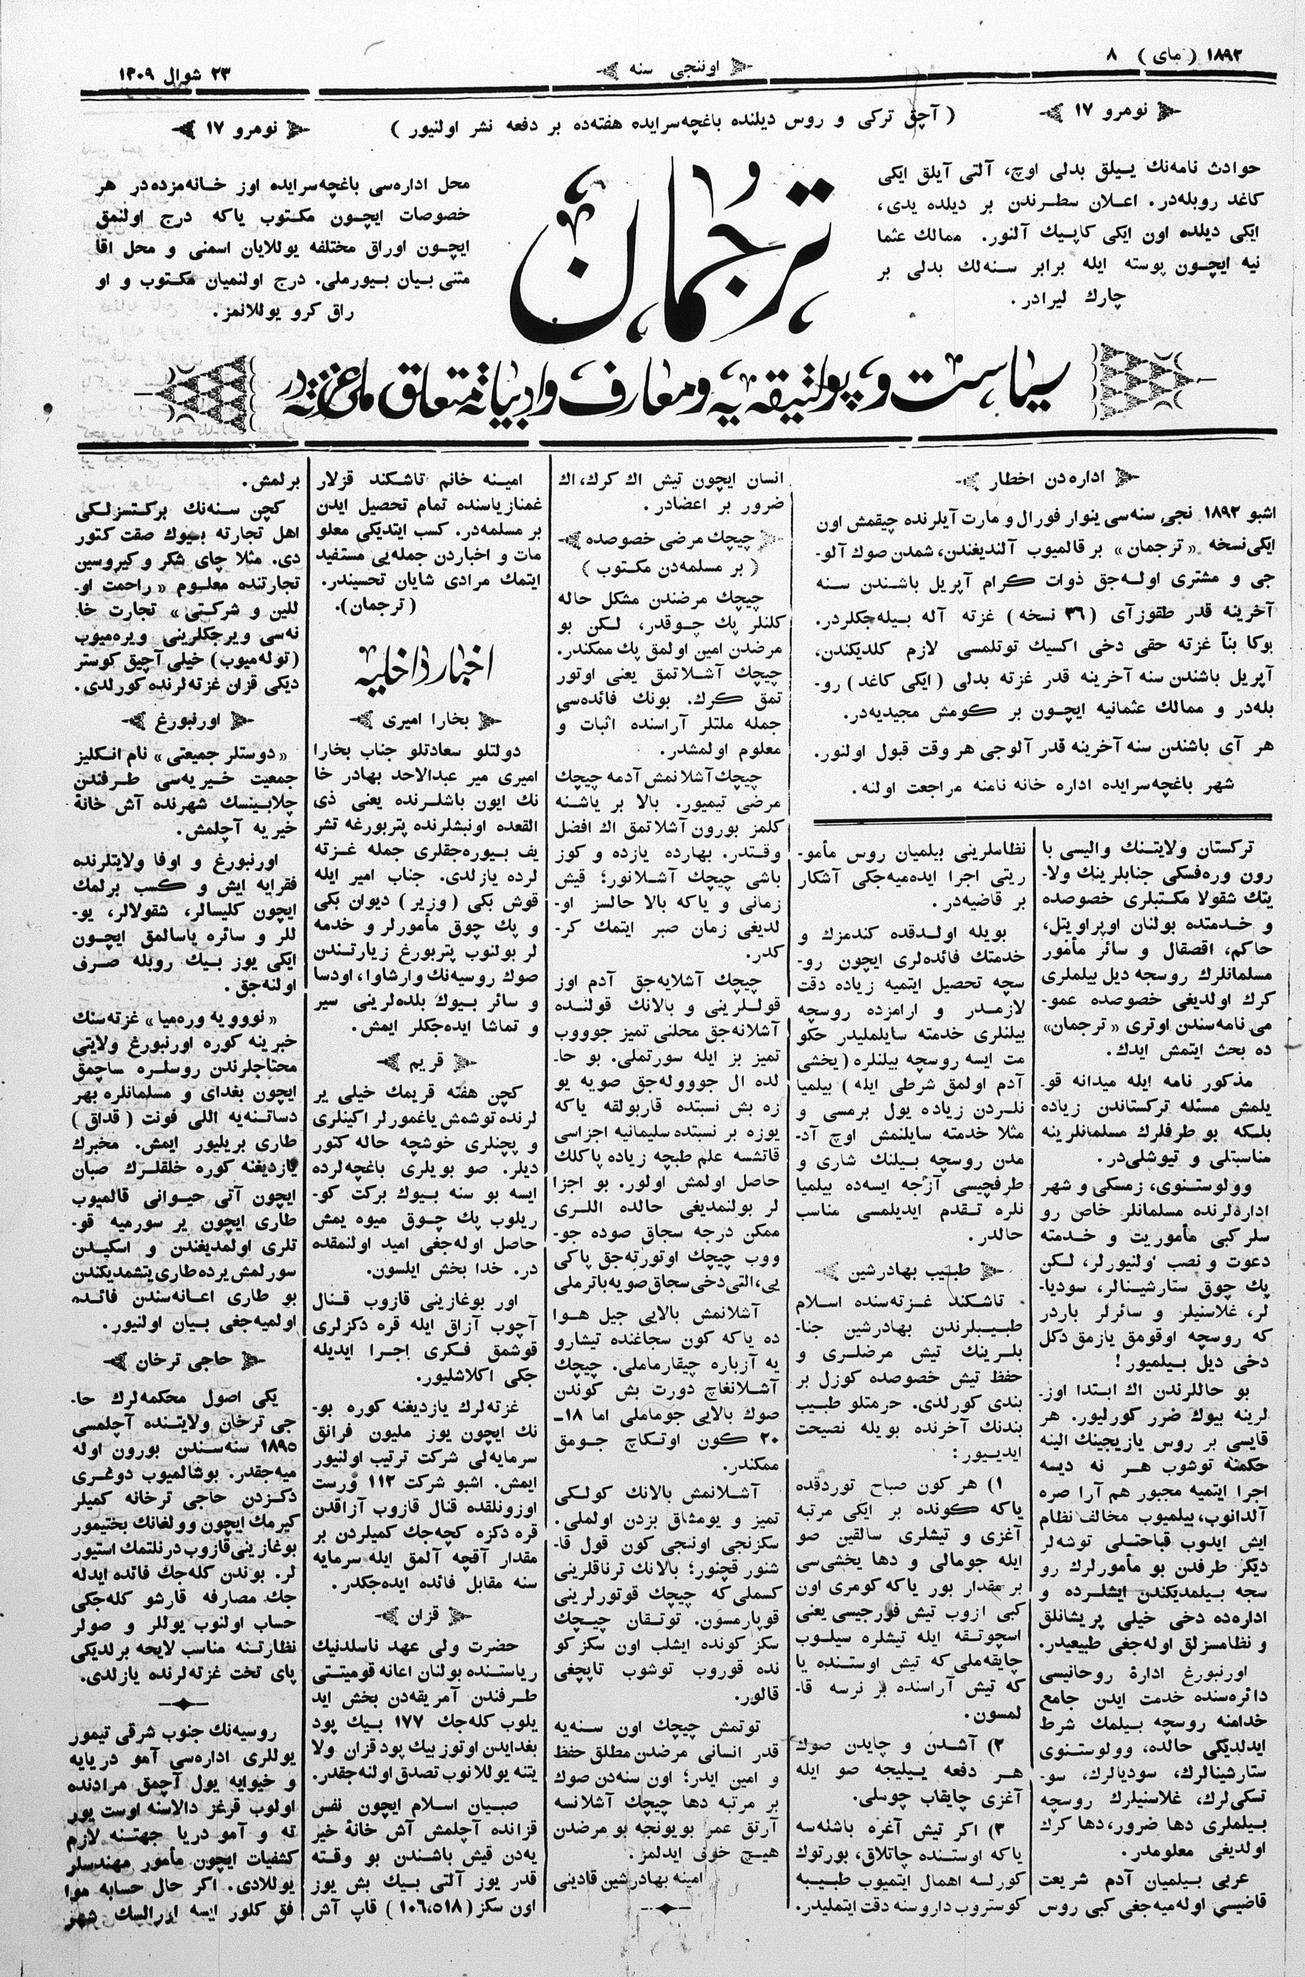 ١٨٩٢ ( مای ) ٨
اوننجی سنه
٢٣ شوال ١٣٠٩
نومرو ١٧
( آچق ترکی و روس دیلنده باغچه‌سرایده هفته‌ده بر دفعه نشر اولنیور )
نومرو ١٧
حوادث نامه‌نك ییلق بدلی اوچ، آلتی آیلق ایکی
کاغد روبله‌در. اعلان سطرندن بر دیلده یدی،
ایکی دیلده اون ایکی کاپیك آلنور. ممالك عثما
نیه ایچون پوسته ایله برابر سنه‌لك بدلی بر
چارك لیرادر.
ترجمان
محل اداره‌سی باغچه‌سرایده اوز خانه‌مزده‌در هر
خصوصات ایچون مکتوب یاکه درج اولنمق
ایچون اوراق مختلفه یوللایان اسمنی و محل اقا
متنی بیان بیورملی. درج اولنمیان مکتوب و او
راق کرو یوللانمز.
سیاست و پولتیقه‌یه و معارف و ادبیاته متعلق ملی غزته‌در
اداره‌دن اخطار
اشبو ١٨٩٢ نجی سنه‌سی ینوار فورال و مارت آیلرنده چیقمش اون
ایکی نسخه «ترجمان» بر قالمیوب آلندیغندن، شمدن صوك آلو-
جی و مشتری اوله‌جق ذوات کرام آپریل باشندن سنه
آخرینه قدر طقوز آی ( ٣٦ نسخه ) غزته آله بیله‌جکلردر.
بوکا بنآ غزته حقی دخی اکسیك توتلمسی لازم کلدیکندن،
آپریل باشندن سنه آخرینه قدر غزته بدلی ( ایکی کاغد ) رو-
بله‌در و ممالك عثمانیه ایچون بر کومش مجیدیه‌در.
هر آی باشندن سنه آخرینه قدر آلوجی هر وقت قبول اولنور.
شهر باغچه‌سرایده اداره خانه نامنه مراجعت اولنه.
ترکستان ولایتنك والیسی با
رون وره‌فسکی جنابلرینك ولا-
یتك شقولا مکتبلری خصوصده
و خدمتده بولنان اوپراویتل،
حاکم، اقصقال و سائر مأمور
مسلمانلرك روسجه دیل بیلملری
کرك اولدیغی خصوصده عمو-
می نامه‌سندن اوتری «ترجمان»
ده بحث ایتمش ایدك.
مذکور نامه ایله میدانه قو-
یلمش مسئله ترکستاندن زیاده
بلکه بو طرفلرك مسلمانلرینه
مناسبتلی و تیوشلی‌در.
وولوستنوی، زمسکی و شهر
اداره‌لرنده مسلمانلر خاص رو
سلر کبی مأموریت و خدمته
دعوت و نصب اولنیورلر، لکن
پك چوق ستارشینالر، سودیا-
لر، غلاسنیلر و سائرلر باردر
که روسجه اوقومق یازمق دکل
دخی دیل بیلمیور!
بو حاللرندن اك ابتدا اوز-
لرینه بیوك ضرر کورلیور. هر
قایسی بر روس یازیجینك الینه
حکمنه توشوب هر نه دیسه
اجرا ایتمیه مجبور هم آرا صره
آلدانوب، بیلمیوب مخالف نظام
ایش ایدوب قباحتلی توشه‌لر
دیکر طرفدن بو مأمورلرك رو
سجه بیلمدیکندن ایشلرده و
اداره‌ده دخی خیلی پریشانلق
و نظامسزلق اوله‌جغی طبیعیدر.
اورنبورغ ادارۀ روحانیسی
دائره‌سنده خدمت ایدن جامع
خدامنه روسجه بیلمك شرط
ایدلدیکی حالده، وولوستنوی
ستارشینالرك، سودیالرك، سو-
تسکی‌لرك، غلاسنیلرك روسجه
بیلملری دها ضرور، دها کرك
اولدیغی معلومدر.
عربی بیلمیان آدم شریعت
قاضیسی اوله‌میه‌جغی کبی روس
نظاملرینی بیلمیان روس مأمو-
ریتی اجرا ایده‌میه‌جکی آشکار
بر قاضیه‌در.
بویله اولدقده کندمزك و
خدمتك فائده‌لری ایچون رو-
سچه تحصیل ایتمیه زیاده دقت
لازمدر و ارامزده روسجه
بیلنلری خدمته سایلملیدر حکو
مت ایسه روسجه بیلنلره ( یخشی
آدم اولمق شرطی ایله ) بیلمیا
نلردن زیاده یول برمسی و
مثلا خدمته سایلنمش اوچ آد-
مدن روسجه بیلنك شاری و
طرفچیسی آزجه ایسه‌ده بیلمیا
نلره تقدم ایدیلمسی مناسب
حالدر.
طبیب بهادرشین
تاشکند غزته‌سنده اسلام
طبیبلرندن بهادرشین جنا-
بلرینك تیش مرضلری و
حفظ تیش خصوصده کوزل بر
بندی کورلدی. حرمتلو طبیب
بندنك آخرنده بویله نصیحت
ایدییور:
١) هر کون صباح توردقده
یاکه کونده بر ایکی مرتبه
آغزی و تیشلری سالقین صو
ایله جومالی و دها یخشی‌سی
بر مقدار بور یاکه کومری اون
کبی ازوب تیش فورجیسی یعنی
اسچوتقه ایله تیشلره سیلوب
چایقه‌ملی که تیش اوستنده یا
که تیش آراسنده بر نرسه قا-
لمسون.
٢) آشدن و چایدن صوك
هر دفعه ییلیجه صو ایله
آغزی چایقاب چوملی.
٣) اکر تیش آغره باشله‌سه
یاکه اوستنده چاتلاق، بورتوك
کورلسه اهمال ایتمیوب طبیبه
کوستروب داروسنه دقت ایتملیدر.
انسان ایچون تیش اك کرك، اك
ضرور بر اعضادر.
چیچك مرضی خصوصده
( بر مسلمه‌دن مکتوب )
چیچك مرضندن مشکل حاله
کلنلر پك چوقدر، لکن بو
مرضدن امین اولمق پك ممکندر.
چیچك آشلاتمق یعنی اوتور
تمق کرك. بونك فائده‌سی
جمله ملتلر آراسنده اثبات و
معلوم اولمشدر.
چیچك آشلانمش آدمه چیچك
مرضی تیمیور. بالا بر یاشنه
کلمز بورون آشلاتمق اك افضل
وقتدر. بهارده یازده و کوز
باشی چیچك آشلانور؛ قیش
زمانی و یاکه بالا حالسز او-
لدیغی زمان صبر ایتمك کر-
کدر.
چیچك آشلایه‌جق آدم اوز
قوللرینی و بالانك قولنده
آشلانه‌جق محلنی تمیز جوووب
تمیز بز ایله سورتملی. بو حا-
لده ال جوووله‌جق صویه یو
زه بش نسبتده قاربولقه یاکه
یوزه بر نسبتده سلیمانیه اجزاسی
قاتشسه علم طبچه زیاده پاکلك
حاصل اولمش اولور. بو اجزا
لر بولنمدیغی حالده اللری
ممکن درجه سجاق صوده جو-
ووب چیچك اوتورته‌جق پاکی
یی، التی دخی سجاق صویه باترملی
آشلانمش بالایی جیل هوا
ده یاکه کون سجاغنده تیشارو
یه آزباره چیقارماملی. چیچك
آشلانغاچ دورت بش کوندن
صوك بالایی جوماملی اما ١٨-
٢٠ کون اوتکاچ جومق
ممکندر.
آشلانمش بالانك کولکی
تمیز و یومشاق بزدن اولملی.
سکزنجی اوننجی کون قول قا-
شنور قچنور؛ بالانك ترناقلرینی
کسملی که چیچك قوتورلرینی
قوپارمسون. توتقان چیچك
سکز کونده ایشلب اون سکز کو
نده قوروب توشوب تاپچغی
قالور.
توتمش چیچك اون سنه‌یه
قدر انسانی مرضدن مطلق حفظ
و امین ایدر؛ اون سنه‌دن صوك
بر مرتبه دها چیچك آشلانسه
آرتق عمر بویونجه بو مرضدن
هیچ خوف ایدلمز.
امینه بهادرشین قادینی
امینه خانم تاشکند قزلار
غمنازیاسنده تمام تحصیل ایدن
بر مسلمه‌در. کسب ایتدیکی معلو
مات و اخباردن جمله‌یی مستفید
ایتمك مرادی شایان تحسیندر.
(ترجمان).
اخبار داخلیه
بخارا امیری
دولتلو سعادتلو جناب بخارا
امیری میر عبدالاحد بهادر خا
نك ایون باشلرنده یعنی ذی
القعده اونبشلرنده پتربورغه تشر
یف بیوره‌جقلری جمله غزته
لرده یازلدی. جناب امیر ایله
قوش بکی ( وزیر ) دیوان بکی
و پك چوق مأمورلر و خدمه
لر بولنوب پتربورغ زیارتندن
صوك روسیه‌نك وارشاوا، اودسا
و سائر بیوك بلده‌لرینی سیر
و تماشا ایده‌جکلر ایمش.
قریم
کچن هفته قریمك خیلی یر
لرنده توشمش یاغمورلر اکینلری
و پچنلری خوشچه حاله کتور
دیلر. صو بویلری باغچه‌لرده
ایسه بو سنه بیوك برکت کو-
ریلوب پك چوق میوه یمش
حاصل اوله‌جغی امید اولنمقده
در. خدا بخش ایلسون.
اور بوغازینی قازوب قنال
آچوب آزاق ایله قره دکزلری
قوشمق فکری اجرا ایدیله
جکی اکلاشلیور.
غزته‌لرك یازدیغنه کوره بو-
نك ایچون یوز ملیون فرانق
سرمایه‌لی شرکت ترتیب اولنیور
ایمش. اشبو شرکت ١١٢ ورست
اوزونلقده قنال قازوب آزاقدن
قره دکزه کچه‌جك کمیلردن بر
مقدار آقچه آلمق ایله سرمایه
سنه مقابل فائده ایده‌جکدر.
قزان
حضرت ولی عهد ناسلدنیك
ریاستنده بولنان اعانه قومیتتی
طرفندن آمریقه‌دن بخش اید
یلوب کله‌جك ١٧٧ بیك پود
بغدایدن اوتوز بیك پود قزان ولا
یتنه یوللانوب تصدق اولنه‌جقدر.
صبیان اسلام ایچون نفس
قزانده آچلمش آش خانۀ خیر
یه‌دن قیش باشندن بو وقته
قدر یوز آلتی بیك بش یوز
اون سکز (١٠٦،٥١٨) قاپ آش
برلمش.
کچن سنه‌نك برکتسزلکی
اهل تجارته بیوك صقت کتور
دی. مثلا چای شکر و کیروسین
تجارتنده معلوم «راحمت او-
للین و شرکتی» تجارت خا
نه‌سی ویرجکلرینی ویره‌میوب
(توله‌میوب) خیلی آچیق کوستر
دیکی قزان غزته‌لرنده کورلدی.
اورنبورغ
«دوستلر جمیعتی» نام انکلیز
جمعیت خیریه‌سی طرفندن
چلابینسك شهرنده آش خانۀ
خیریه آچلمش.
اورنبورغ و اوفا ولایتلرنده
فقرایه ایش و کسب برلمك
ایچون کلیسالر، شقولالر، یو-
للر و سائره یاسالمق ایچون
ایکی یوز بیك روبله صرف
اولنه‌جق.
«نووویه وره‌میا» غزته‌سنك
خبرینه کوره اورنبورغ ولایتی
محتاجلرندن روسلره ساچمق
ایچون بغدای و مسلمانلره بهر
دساتنه‌یه اللی فونت ( قداق )
طاری بریلیور ایمش. مخبرك
یازدیغنه کوره خلقلرك صبان
ایچون آتی حیوانی قالمیوب
طاری ایچون یر سورمیه قو-
تلری اولمدیغندن و اسکیدن
سورلمش یرده طاری یتشمدیکندن
بو طاری اعانه‌سندن فائده
اولمیه‌جغی بیان اولنیور.
حاجی ترخان
یکی اصول محکمه‌لرك حا-
جی ترخان ولایتنده آچلمسی
١٨٩٥ سنه‌سندن بورون اوله
میه‌جقدر. بوشالمیوب دوغری
دکزدن حاجی ترخانه کمیلر
کیرمك ایچون وولغانك بختیمور
بوغازینی قازوب درنلتمك استیور
لر. بوندن کله‌جك فائده ایدله
جك مصارفه قارشو کله‌جکی
حساب اولنوب یوللر و صولر
نظارتنه مناسب لایحه برلدیکی
پای تخت غزته‌لرنده یازلدی.
روسیه‌نك جنوب شرقی تیمور
یوللری اداره‌سی آمو دریایه
و خیوایه یول آچمق مرادنده
اولوب قرغز دالاسنه اوست یور
ته و آمو دریا جهتنه لازم
کشفیات ایچون مأمور مهندسلر
یوللادی. اکر حال حسابه موا
فق کلور ایسه اورالسك شهر